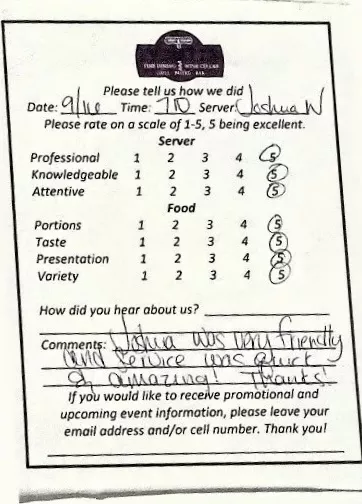 Please tell us how we did
Date: 9/16 Time: 710 Server: Joshua W
Please rate on a scale of 1-5, 5 being excellent.
Server
Professional 1 2 3 4 5
Knowledgeable 1 2 3 4 5
Attentive 1 2 3 4 5
Food
Portions 1 2 3 4 5
Taste 1 2 3 4 5
Presentation 1 2 3 4 5
Variety 1 2 3 4 5
How did you hear about us?
Comments: Joshua was very friendly
and service was quick
& amazing! Thanks!
If you would like to receive promotional and
upcoming event information, please leave your
email address and/or cell number. Thank you!